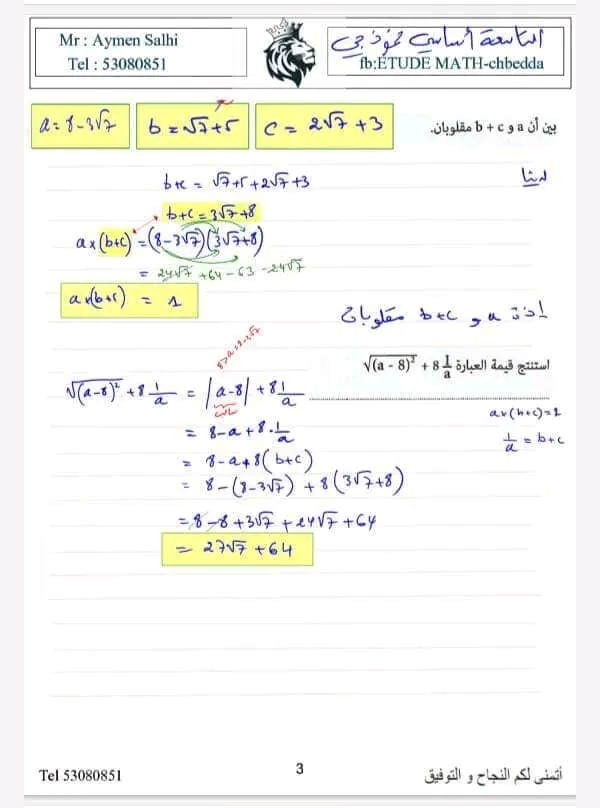 Mr : Aymen Salhi
Tel : 53080851
التاسعة أساسي نموذجي
fb:ETUDE MATH-chbedda
a = 8 - 3√7
b = √7 + 5
c = 2√7 + 3
بين أن a و b + c مقلوبان.
لدينا
b+c = √7+5+2√7+3
b+c = 3√7+8
a×(b+c) = (8-3√7)(3√7+8)
= 24√7 + 64 - 63 - 24√7
a×(b+c) = 1
إذن a و b+c مقلوبان
استنتج قيمة العبارة √(a - 8)² + 8 1/a
√(a-8)² + 8 1/a = |a-8| + 8 1/a
سالب
a×(b+c)=1
= 8-a+8·1/a
1/a = b+c
= 8-a+8(b+c)
= 8-(8-3√7) + 8(3√7+8)
= 8-8+3√7+24√7+64
= 27√7+64
Tel 53080851
3
أتمنى لكم النجاح و التوفيق